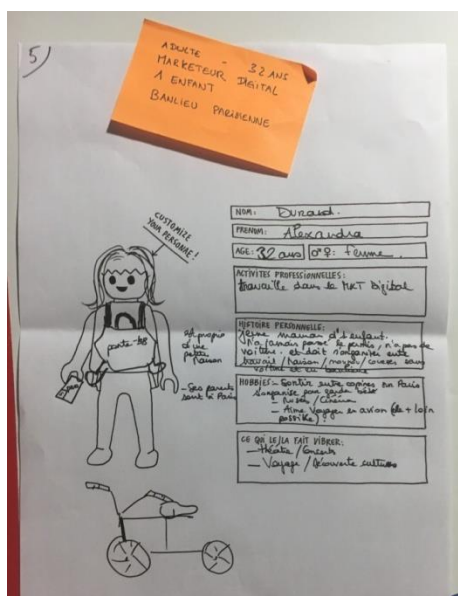 5)
ADULTE - 32 ANS
MARKETEUR DIGITAL
1 ENFANT
BANLIEU PARISIENNE
CUSTOMIZE
YOUR PERSONAE!
porte-bb
NOM: Durand.
PRENOM: Alexandra
AGE: 32 ans
♂♀: femme.
ACTIVITES PROFESSIONNELLES:
travaille dans le MKT Digital
HISTOIRE PERSONNELLE:
Jeune maman d'1 enfant.
N'a jamais passé le permis, n'a pas de
voiture. et doit s'organiser entre
travail / maison / / courses sans
voiture et en banlieue
- A proprio
d'une
petite
maison
- Ses parents
sont à Paris
HOBBIES: - Sortir entre copines sur Paris
s'organise pour garde bébé
- Musées / Cinéma
- Aime Voyager en avion (le + loin
possible)
CE QUI LE/LA FAIT VIBRER:
- théâtre / Concerts
- Voyage / Découverte cultures